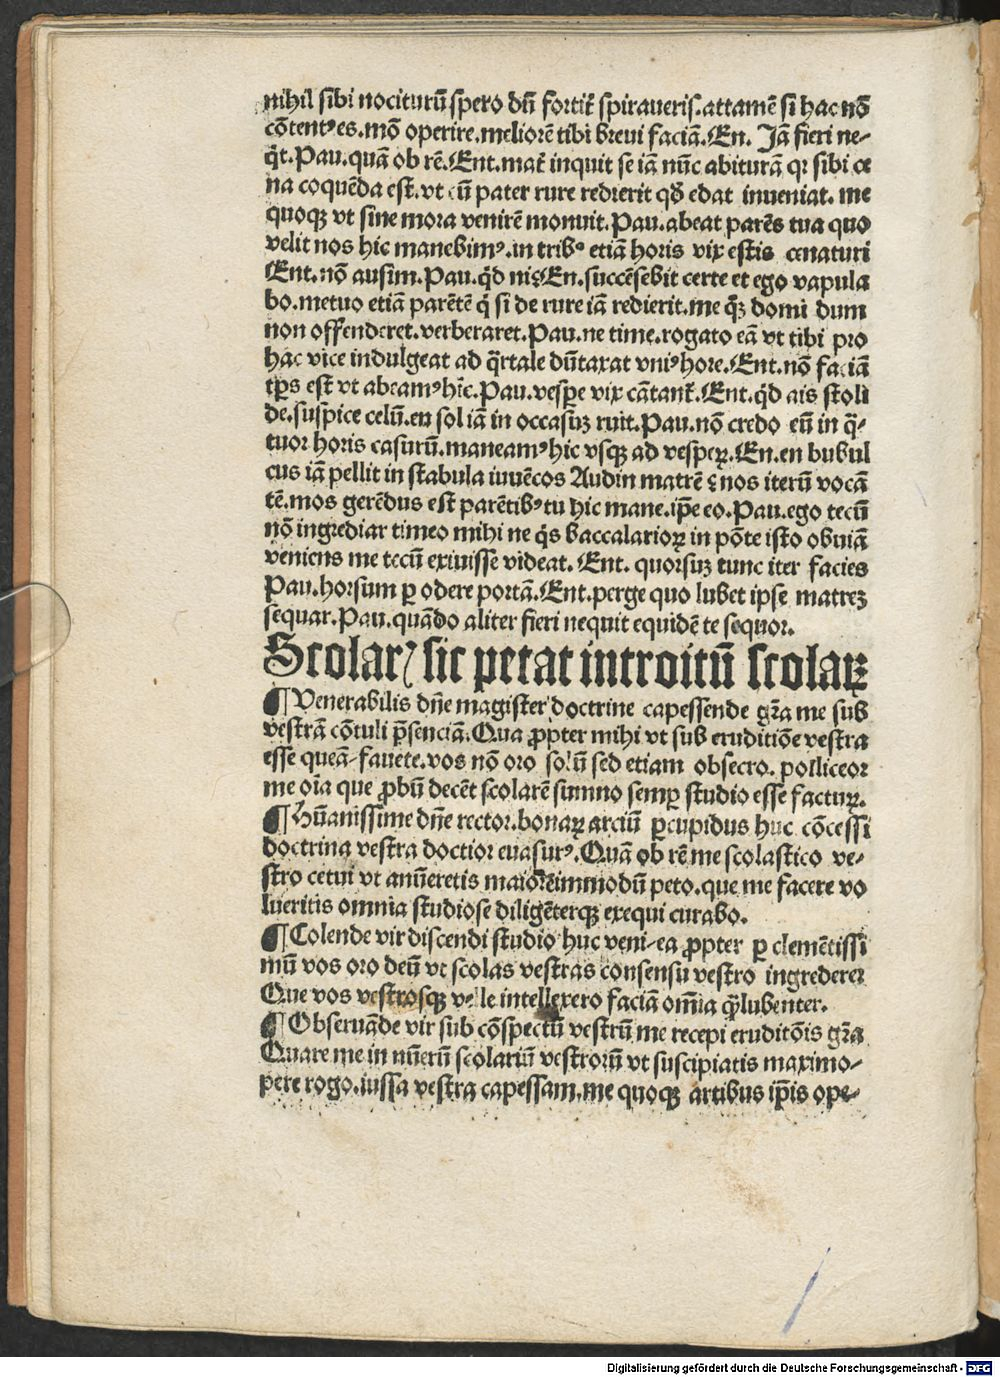 nihil sibi nociturū spero dū fortiť spiraueris. attamē si hac nō
cōtentꝰ es. mō operire. meliorē tibi breui faciā. En. Jā fieri ne-
q̇t. Pau. quā ob rē. Ent. mať inquit se iā nūc abiturā qꝛ sibi ce
na coquēda est. vt cū pater rure redierit qđ edat inueniat. me
quoqꝫ vt sine mora venirē monuit. Pau. abeat parēs tua quo
velit nos hic manebimꝰ. in tribꝰ etiā horis vix estis cenaturi
Ent. nō ausim. Pau. q̇d ni⁊ En. succēsebit certe et ego vapula
bo. metuo etiā parētē q̇ si de rure iā redierit. me q̄ꝫ domi dum
non offenderet. verberaret. Pau. ne time. rogato eā vt tibi pro
hac vice indulgeat ad q̄rtale dūtaxat vniꝰ hore. Ent. nō faciā
tp̄s est vt abeamꝰ hīc. Pau. vesꝑe vix cātanť. Ent. q̇d ais stoli
de. suspice celū. en sol iā in occasuꝫ ruit. Pau. nō credo eū in q̄-
tuor horis casurū. maneamꝰ hic vsqꝫ ad vesperꝝ. En. en bubul
cus iā pellit in stabula iuuēcos Audin matrē ⁊ nos iterū vocā
tē. mos gerēdus est parētibꝰ tu hic mane. ip̄e eo. Pau. ego tecū
nō ingrediar timeo mihi ne q̇s baccalarioꝝ in pōte isto obuiā
veniens me tecū exiuisse videat. Ent. quorsuꝫ tunc iter facies
Pau. horsum ꝑ odere portā. Ent. perge quo lubet ipse matreꝫ
sequar. Pau. quādo aliter fieri nequit equidē te sequor.
Scolarꝭ sic petat introitū scolaꝝ
¶ Venerabilis dn̄e magister doctrine capessende gr̄a me sub
vestrā cōtuli p̄senciā. Qua ꝓpter mihi vt sub eruditiōe vestra
esse queā. fauete. vos nō oro solū sed etiam obsecro. polliceor
me oīa que ꝓbū decēt scolarē sumno semꝑ studio esse factuꝝ.
¶ Hūanissime dn̄e rector. bonaꝝ arciū ꝑcupidus huc cōcessi
doctrina vestra doctior euasurꝰ. Quā ob rē me scolastico ve-
stro cetui vt anūeretis maiorēimmodū peto. que me facere vo
lueritis omnia studiose diligēterqꝫ exequi curabo.
¶ Colende vir discendi studio huc veni. ea ꝓpter ꝑ clemētissi
mū vos oro deū vt scolas vestras consensu vestro ingrederer
Que vos vestrosqꝫ velle intellexero faciā om̄ia q̄lubenter.
¶ Obseruāde vir sub cōspectū vestrū me recepi eruditōis gr̄a
Quare me in nūerū scolariū vestrorū vt suscipiatis maximo-
pere rogo. iussa vestra capessam. me quoqꝫ artibus ip̄is ope-
Digitalisierung gefördert durch die Deutsche Forschungsgemeinschaft - DFG